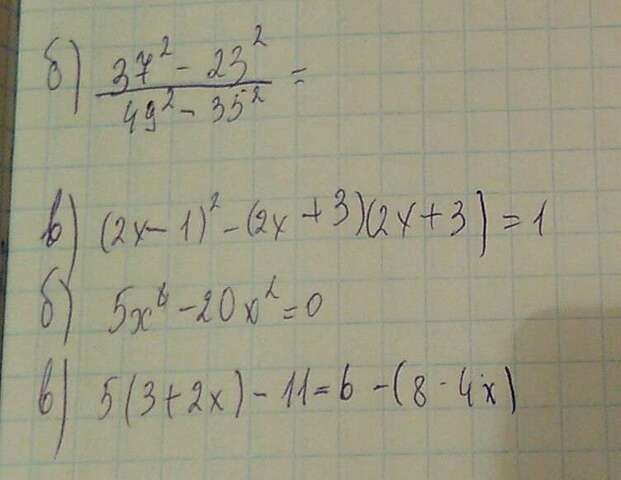 б) (37² - 23²)/(49² - 35²) =
в) (2x - 1)² - (2x + 3)(2x + 3) = 1
б) 5x⁸ - 20x² = 0
в) 5(3 + 2x) - 11 = 6 - (8 - 4x)